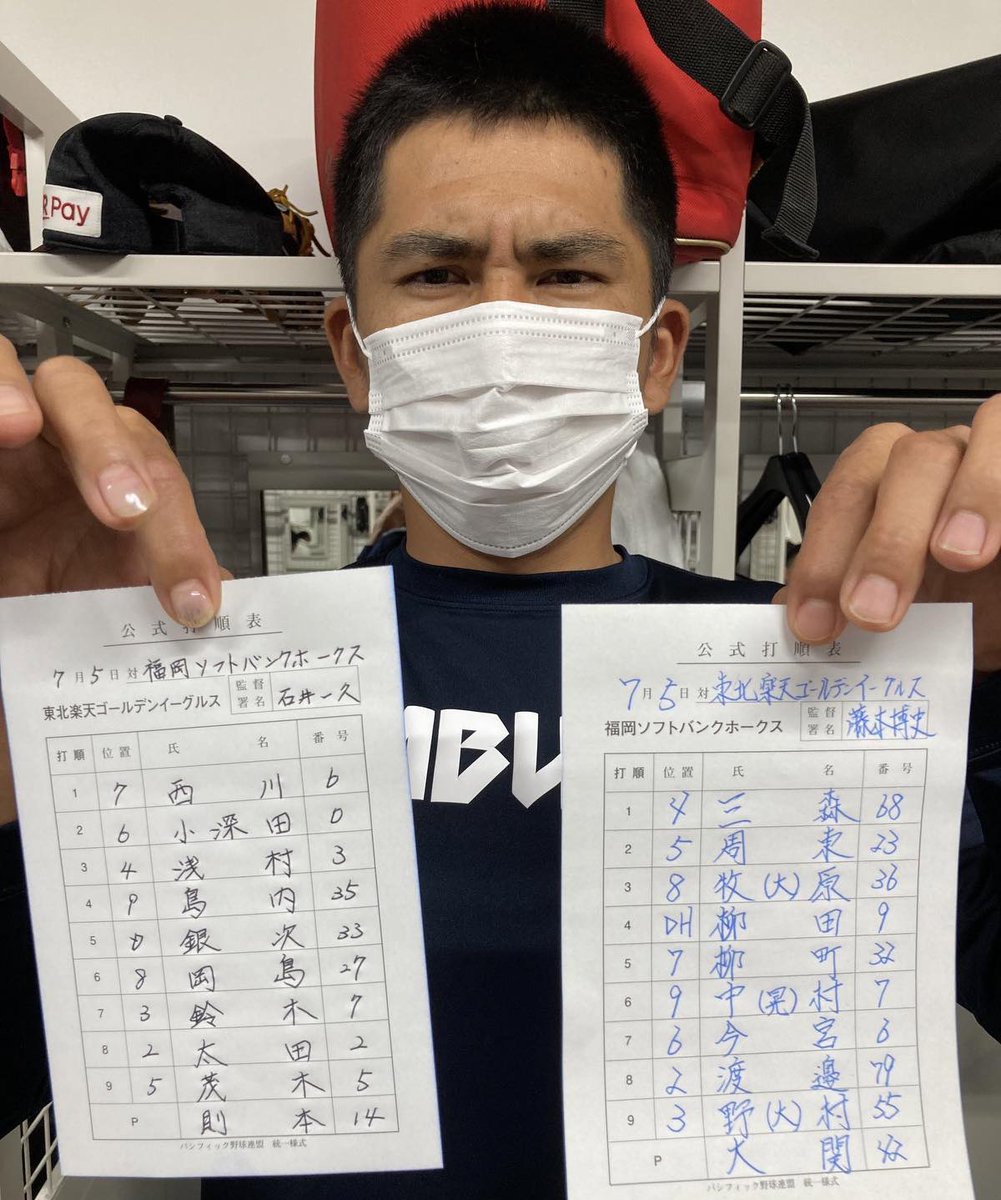 R Pay
MBU
公式打順表
7月5日対 福岡ソフトバンクホークス
東北楽天ゴールデンイーグルス 監督署名 石井一久
打順 位置 氏名 番号
1 7 西川 6
2 6 小深田 0
3 4 浅村 3
4 9 島内 35
5 D 銀次 33
6 8 岡島 27
7 3 鈴木 7
8 2 太田 2
9 5 茂木 5
P 則本 14
パシフィック野球連盟 統一様式
公式打順表
7月5日対 東北楽天ゴールデンイーグルス
福岡ソフトバンクホークス 監督署名 藤本博史
打順 位置 氏名 番号
1 4 三森 68
2 5 周東 23
3 8 牧(大)原 36
4 DH 柳田 9
5 7 柳町 32
6 9 中(晃)村 7
7 6 今宮 6
8 2 渡邉 79
9 3 野(大)村 55
P 大関 42
パシフィック野球連盟 統一様式